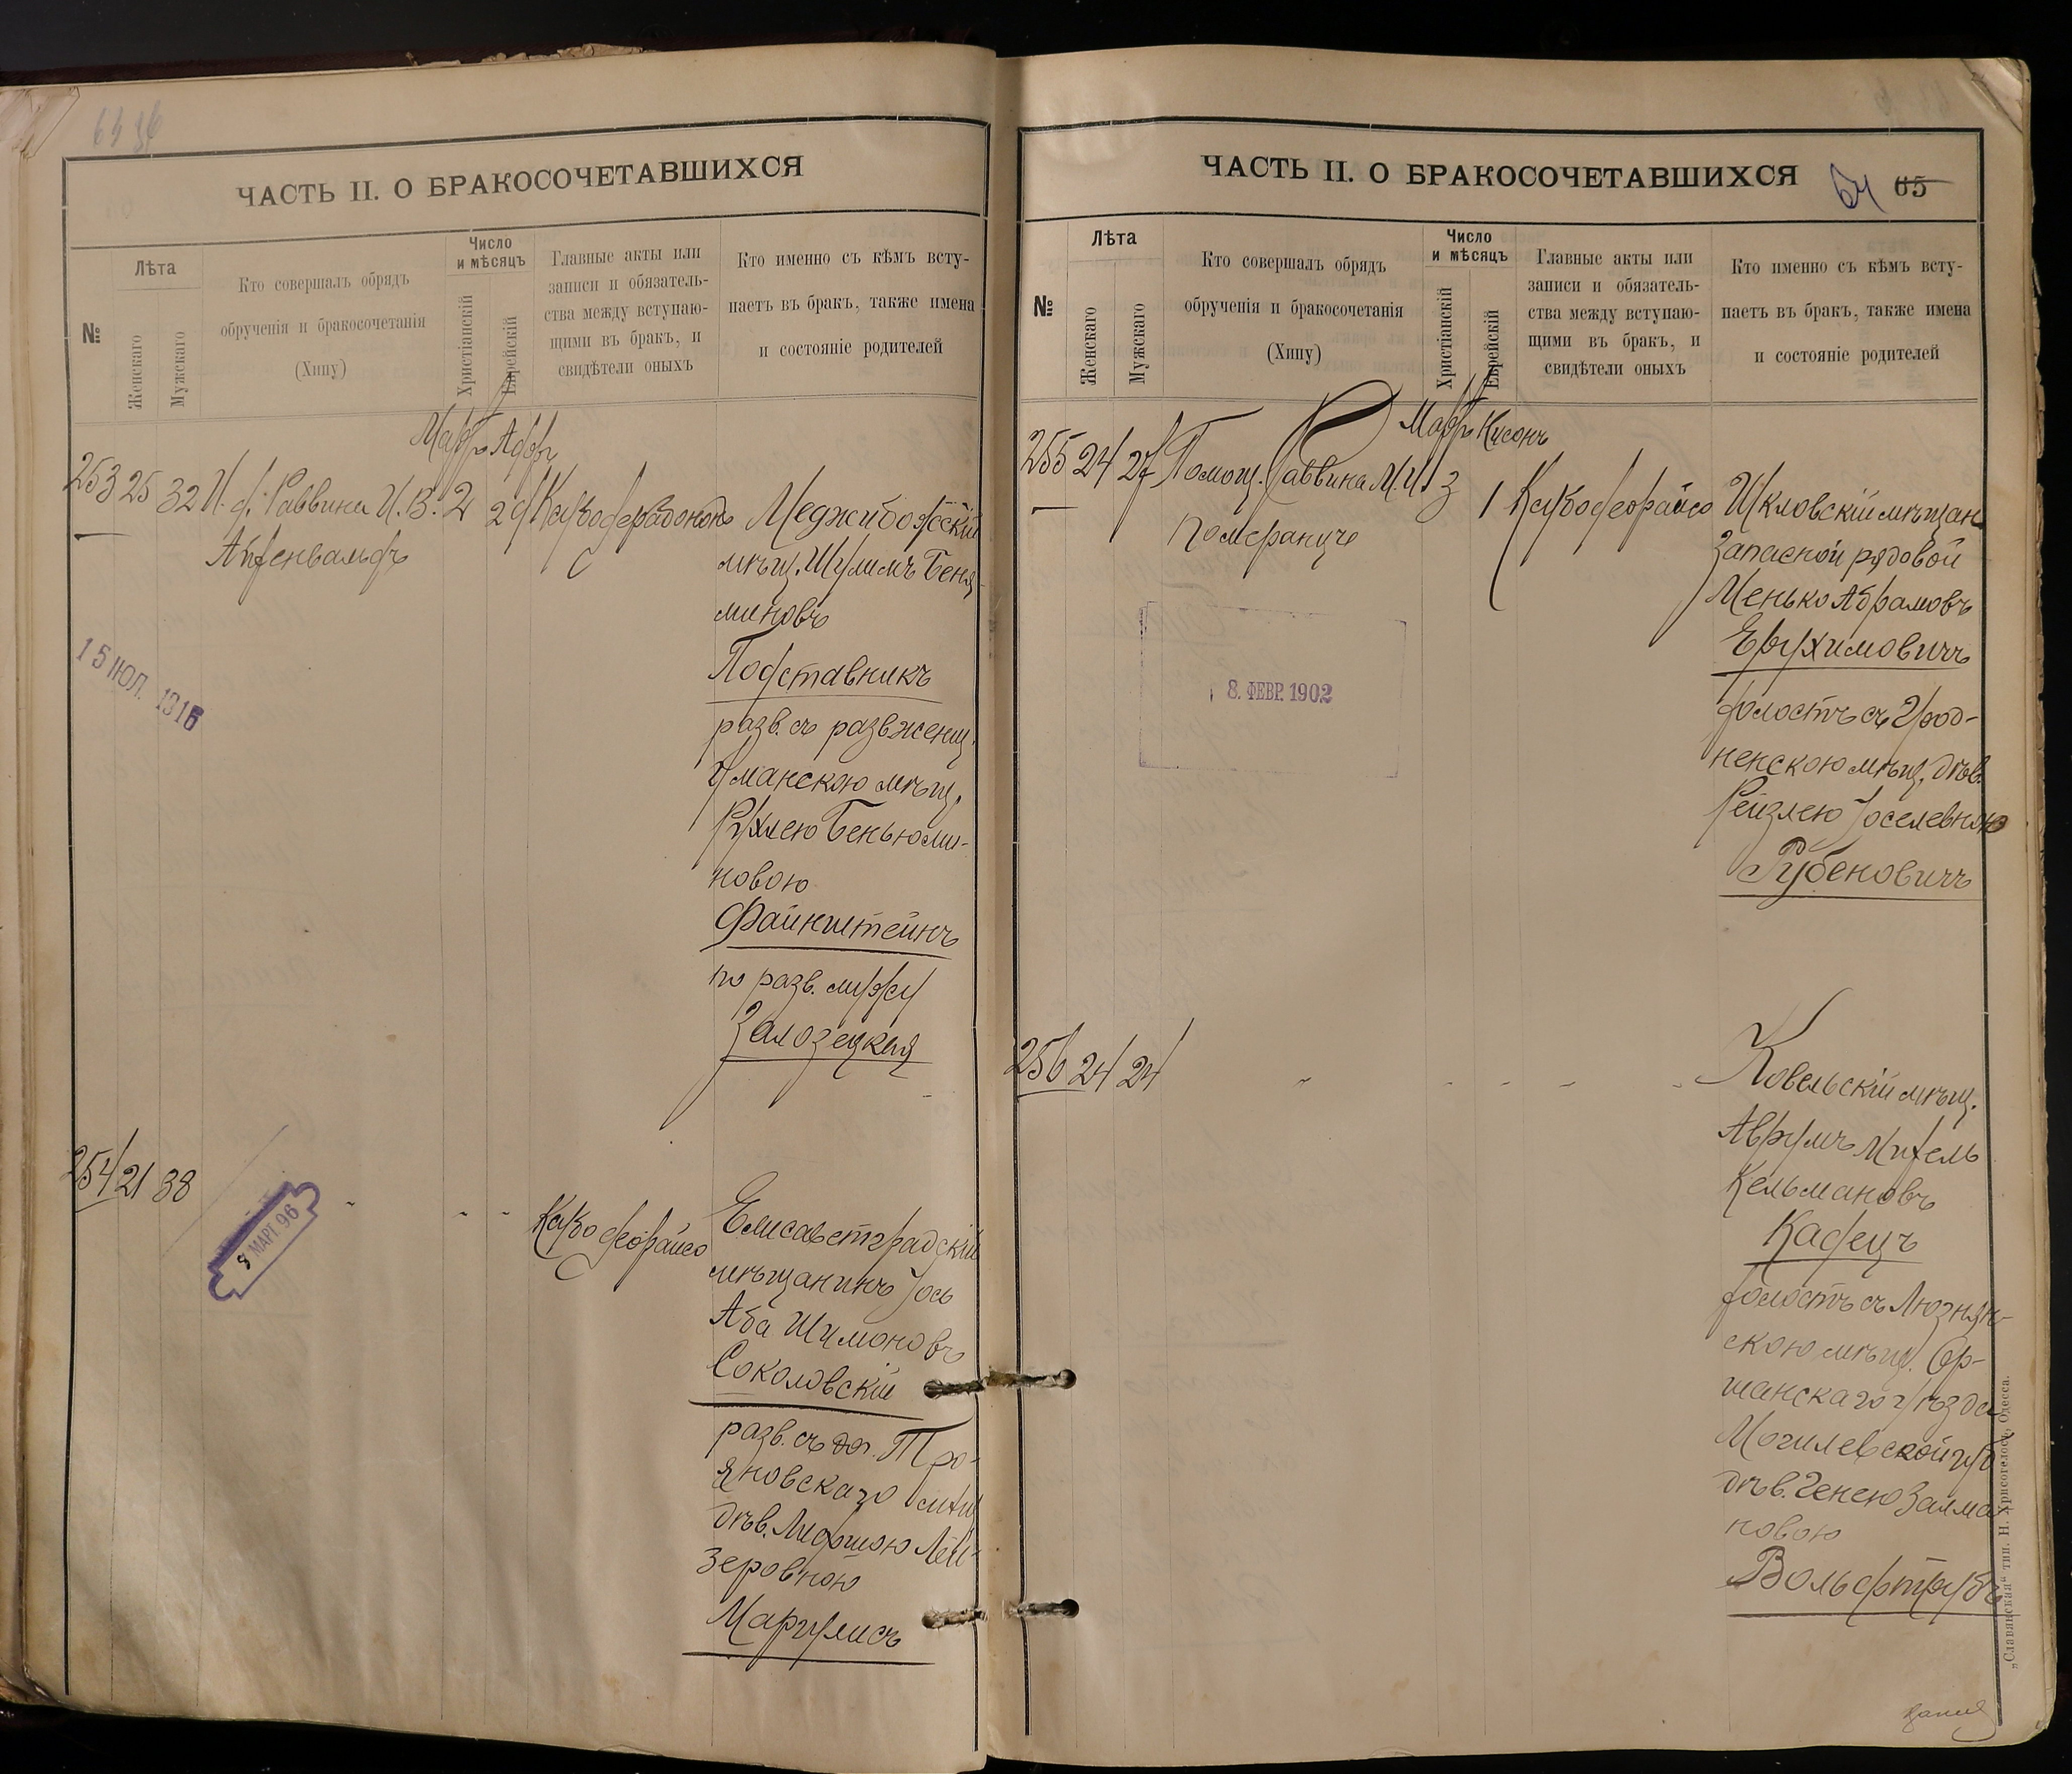 ЧАСТЬ II. О БРАКОСОЧЕТАВШИХСЯ
№
Лѣта
Женскаго
Мужскаго
Кто совершалъ обрядъ
обрученія и бракосочетанія
(Хипу)
Число
и мѣсяцъ
Христіанскій
Еврейскій
Главные акты или
записи и обязатель-
ства между вступаю-
щими въ бракъ, и
свидѣтели оныхъ
Кто именно съ кѣмъ всту-
паетъ въ бракъ, также имена
и состояніе родителей
253 25 32 И. д. Раввина И. В. 2
Меджибожскій
мѣщ. Шулимъ Беня-
миновъ
Подставникъ
разв. съ разв. женщ.
Уманскою мѣщ.
Рухлею Беньюми-
новою
Файнштейнъ
по разв. мужу
Залозецкая
15 ИЮЛ. 1916
254 21 38
8 МАРТ 96
Елисаветградскій
мѣщанинъ Іось
Аба Шимоновъ
Соколовскій
разв. съ
Тро-
яновскаго
дѣв. Лей-
зеровною
Маргулисъ
ЧАСТЬ II. О БРАКОСОЧЕТАВШИХСЯ 64 65
№
Лѣта
Женскаго
Мужскаго
Кто совершалъ обрядъ
обрученія и бракосочетанія
(Хипу)
Число
и мѣсяцъ
Христіанскій
Еврейскій
Главные акты или
записи и обязатель-
ства между вступаю-
щими въ бракъ, и
свидѣтели оныхъ
Кто именно съ кѣмъ всту-
паетъ въ бракъ, также имена
и состояніе родителей
Мартъ Нисонъ
255 24 27 Помощ. Раввина М. И. 3 1
Померанцъ
Шкловскій мѣщан
запасной рядовой
Менько Абрамовъ
Ерухимовичъ
холостъ съ Грод-
ненскою мѣщ. дѣв.
Рейзлею Іоселевною
Рубеновичъ
8. ФЕВР. 1902
256 24 24
Ковельскій мѣщ.
Аврумъ Михель
Кельмановъ
Кадецъ
холостъ съ Люзнян-
скою мѣщ. Ор-
шанскаго уѣзда
Могилевской губ
дѣв. Генею Залма
новою
Вольфтрубъ
„Славянская“ тип. Н. Хрисогелосъ, Одесса.